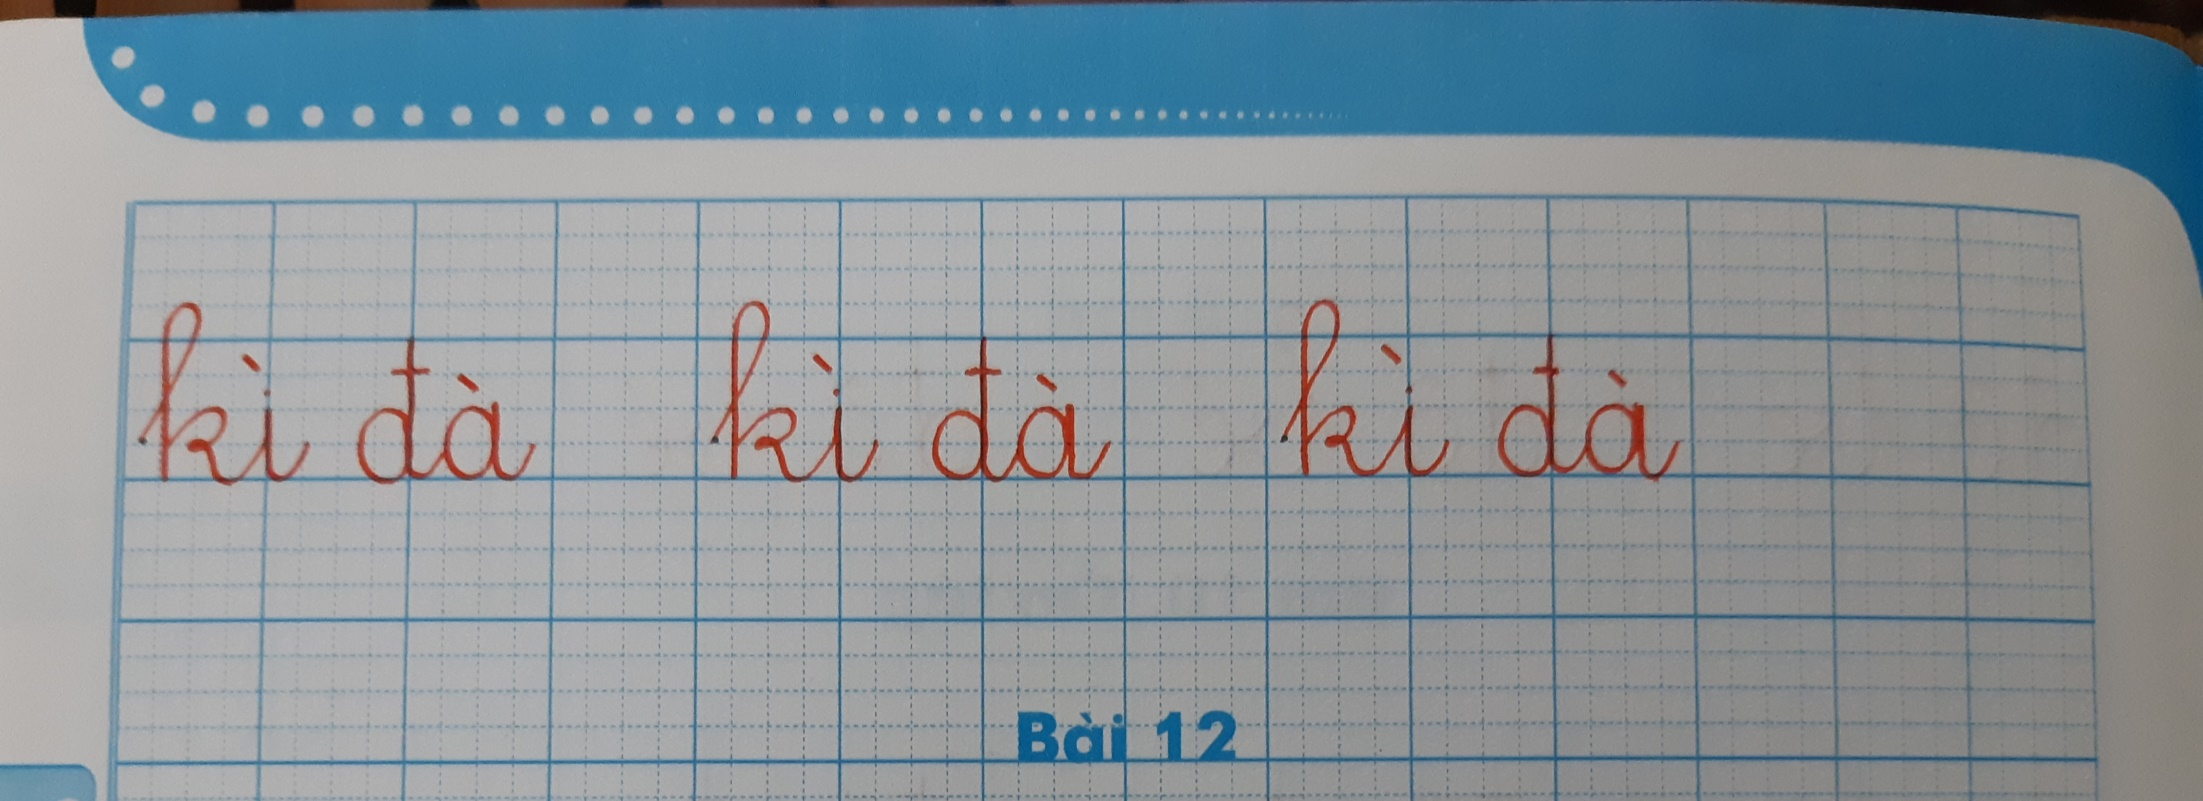 kì đà kì đà kì đà
Bài 12